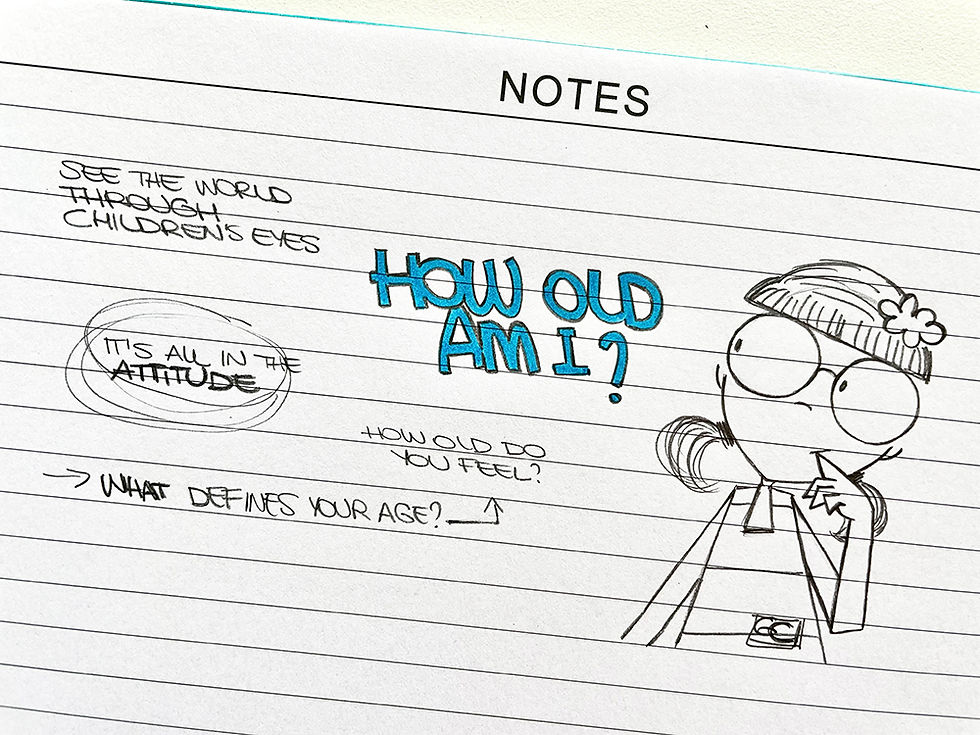 NOTES
SEE THE WORLD
THROUGH
CHILDREN'S EYES
HOW OLD
AM I?
IT'S ALL IN THE
ATTITUDE
HOW OLD DO
YOU FEEL?
→ WHAT DEFINES YOUR AGE?